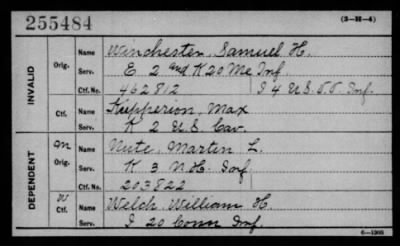 255484 (3-H-4)
INVALID
Orig. Name Winchester, Samuel H.
Serv. E 2 and K 20 Me Inf
Ctf. No. 462812 I 4 U.S.V.V. Inf.
Ctf. Name Kupperion, Max
Serv. K 2 U.S. Cav.
DEPENDENT
M Orig. Name Nute, Martin L.
Serv. K 3 N.H. Inf
Ctf. No. 203822
W Ctf. Name Welch, William H.
Serv. I 20 Conn Inf.
6-1305